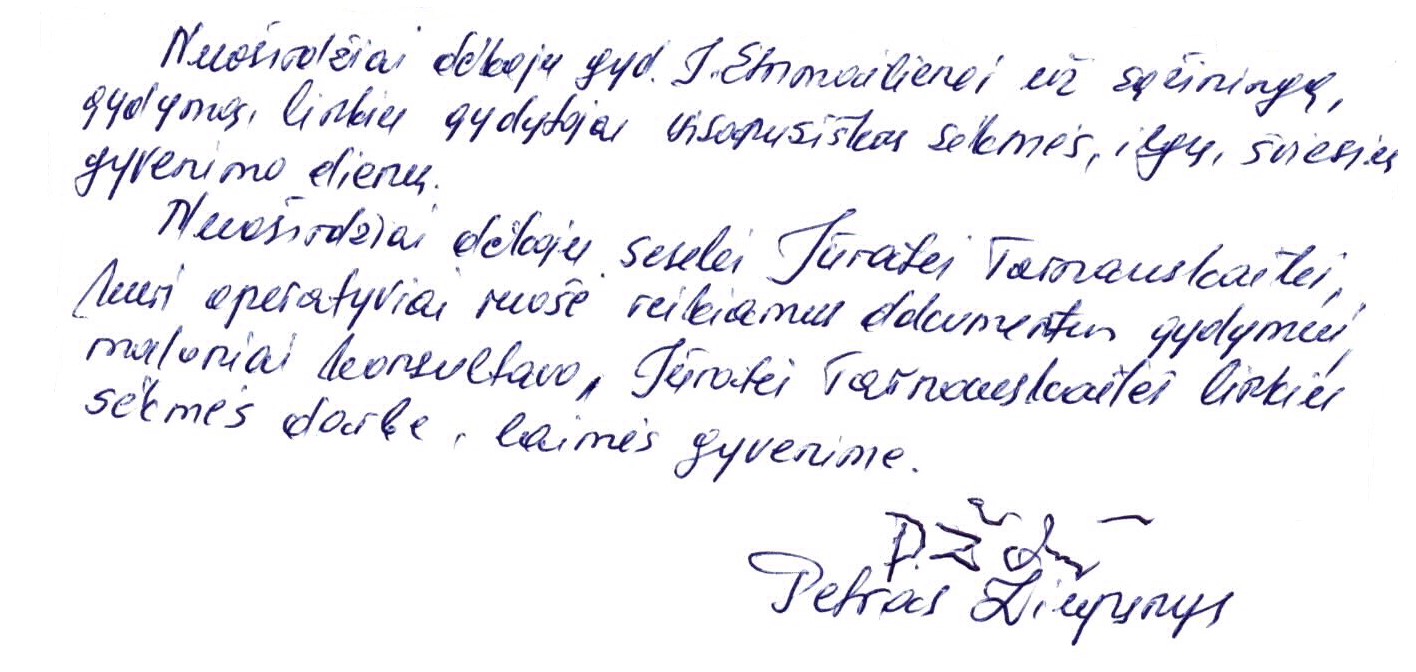 Nuoširdžiai dėkoju gyd. J. Strumailienei už sąžiningą,
gydymą, linkiu gydytojai visapusiškos sėkmės, ilgų, šviesių
gyvenimo dienų.
Nuoširdžiai dėkoju seselei Jūratei Tarnauskaitei,
kuri operatyviai ruošė reikiamus dokumentus gydymui,
maloniai konsultavo, Jūratei Tarnauskaitei linkiu
sėkmės darbe, laimės gyvenime.
Petras